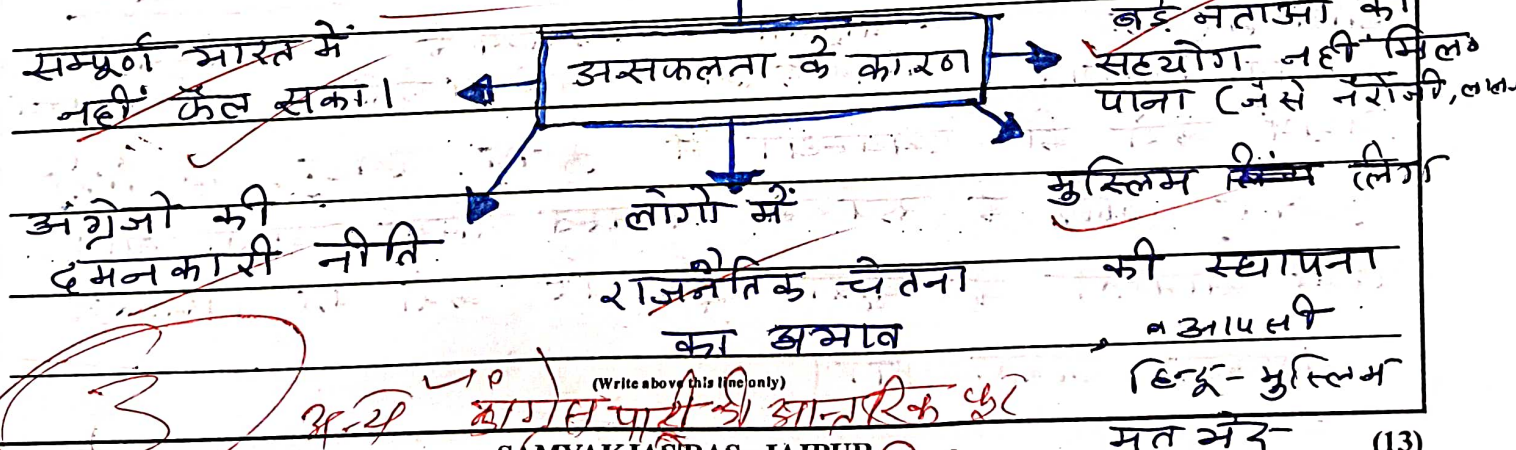 सम्पूर्ण भारत में
नहीं फैल सका।
असफलता के कारण
बड़े नेताओं का
सहयोग नहीं मिल
पाना (जैसे नैरोजी, लाल-
अंग्रेजो की
दमनकारी नीति
लोगो में
राजनैतिक चेतना
का अभाव
मुस्लिम लिग
की स्थापना
व आपसी
हिन्दू - मुस्लिम
मत भेद
(Write above this line only)
3
अन्य
कांग्रेस पार्टी की आन्तरिक फूट
SAMYAK IAS/RAS, JAIPUR
(13)